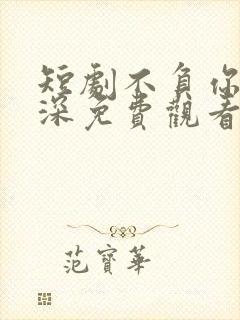 短劇不負你
深免費觀看
范寶華